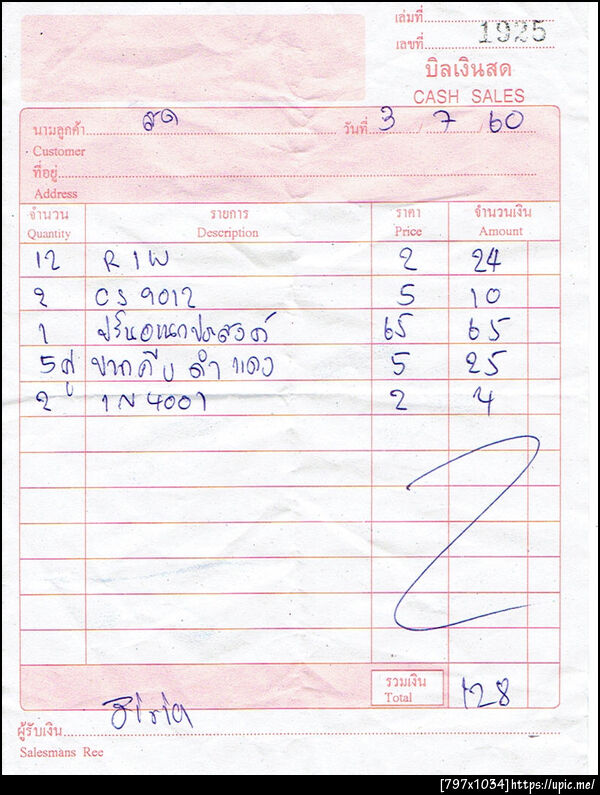 เล่มที่
เลขที่ 1925
บิลเงินสด
CASH SALES
นามลูกค้า สด วันที่ 3 / 7 / 60
Customer
ที่อยู่
Address
จำนวน รายการ ราคา จำนวนเงิน
Quantity Description Price Amount
12 R 1W 2 24
2 CS 9012 5 10
1 ปริ้นอเนกประสงค์ 65 65
5 คู่ ปากคีบ ดำ แดง 5 25
2 1N4001 2 4
รวมเงิน
Total 128
ผู้รับเงิน
Salesmans Ree
[797x1034]https://upic.me/